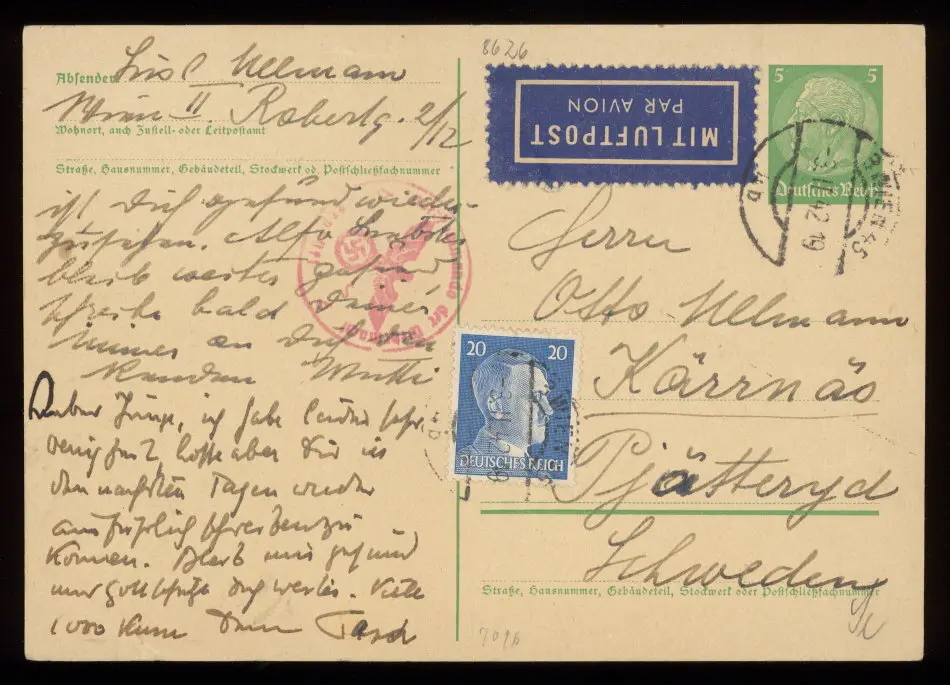 8626
Absender: Lisl Ullmann
Wien II Robertg. 2/12
Wohnort, auch Zustell- oder Leitpostamt
Straße, Hausnummer, Gebäudeteil, Stockwerk od. Postschließfachnummer
ist Dich gesund wieder-
zusehen. Also
bleib weiter gesund
schreibe bald Deiner
immer an Dich
Mutti
Lieber Junge, ich habe leider sehr
wenig hoffe aber Dir in
den nächsten Tagen wieder
ausführlich schreiben zu
können. Bleib mir gesund
und Gott schütze Dich weiter. Viele
1000 Küsse Dein
MIT LUFTPOST
PAR AVION
5 5
Deutsches Reich
WIEN 45
42 19
Herrn
Otto Ullmann
Kärrnäs
Pjätteryd
Schweden
Straße, Hausnummer, Gebäudeteil, Stockwerk oder Postschließfachnummer
20 20
DEUTSCHES REICH
WIEN
7096